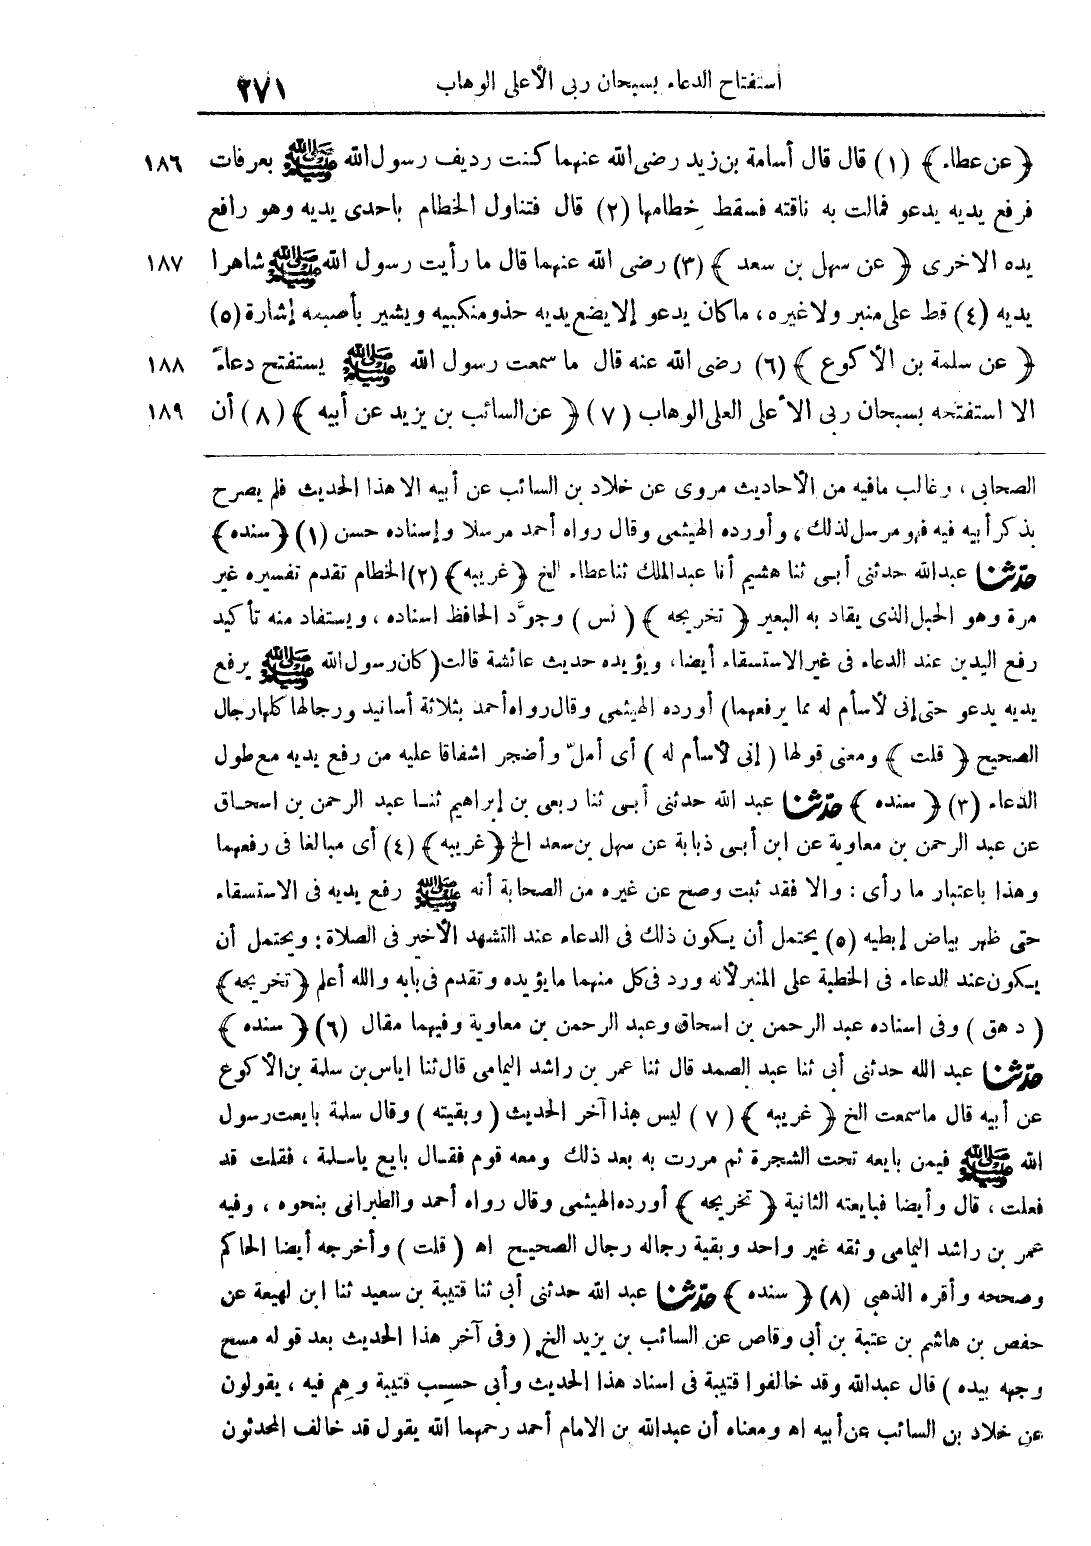 استفتاح الدعاء بسبحان ربى الأعلى الوهاب ٢٧١
﴿عن عطاء﴾ (١) قال قال أسامة بن زيد رضى الله عنهما كنت رديف رسول الله ﷺ بعرفات ١٨٦
فرفع يديه يدعو فمالت به ناقته فسقط خطامها (٢) قال فتناول الخطام باحدى يديه وهو رافع
يده الاخرى ﴿عن سهل بن سعد﴾ (٣) رضى الله عنهما قال ما رأيت رسول الله ﷺ شاهرا ١٨٧
يديه (٤) قط على منبر ولا غيره، ما كان يدعو إلا يضع يديه حذو منكبيه ويشير بأصبعه إشارة (٥)
﴿عن سلمة بن الأكوع﴾ (٦) رضى الله عنه قال ما سمعت رسول الله ﷺ يستفتح دعاءً ١٨٨
الا استفتحه بسبحان ربى الأعلى العلى الوهاب (٧) ﴿عن السائب بن يزيد عن أبيه﴾ (٨) أن ١٨٩
الصحابى، وغالب مافيه من الأحاديث مروى عن خلاد بن السائب عن أبيه الا هذا الحديث فلم يصرح
بذكر أبيه فيه فهو مرسل لذلك، وأورده الهيثمى وقال رواه أحمد مرسلا وإسناده حسن (١) ﴿سنده﴾
حدّثنا عبدالله حدثنى أبى ثنا هشيم أنا عبدالملك ثنا عطاء الخ ﴿غريبه﴾ (٢) الخطام تقدم تفسيره غير
مرة وهو الحبل الذى يقاد به البعير ﴿تخريجه﴾ (نس) وجوَّد الحافظ اسناده، ويستفاد منه تأكيد
رفع اليدين عند الدعاء فى غير الاستسقاء أيضا، ويؤيده حديث عائشة قالت (كان رسول الله ﷺ يرفع
يديه يدعو حتى إنى لأسأم له مما يرفعهما) أورده الهيثمى وقال رواه أحمد بثلاثة أسانيد ورجالها كلها رجال
الصحيح ﴿قلت﴾ ومعنى قولها (إنى لأسأم له) أى أملّ وأضجر اشفاقا عليه من رفع يديه مع طول
الدعاء (٣) ﴿سنده﴾ حدّثنا عبد الله حدثنى أبى ثنا ربعى بن إبراهيم ثنا عبد الرحمن بن اسحاق
عن عبد الرحمن بن معاوية عن ابن أبى ذبابة عن سهل بن سعد الخ ﴿غريبه﴾ (٤) أى مبالغا فى رفعهما
وهذا باعتبار ما رأى: والا فقد ثبت وصح عن غيره من الصحابة أنه ﷺ رفع يديه فى الاستسقاء
حتى ظهر بياض إبطيه (٥) يحتمل أن يكون ذلك فى الدعاء عند التشهد الأخير فى الصلاة: ويحتمل أن
يكون عند الدعاء فى الخطبة على المنبر لأنه ورد فى كل منهما ما يؤيده وتقدم فى بابه والله أعلم ﴿تخريجه﴾
(د هق) وفى اسناده عبد الرحمن بن اسحاق وعبد الرحمن بن معاوية وفيهما مقال (٦) ﴿سنده﴾
حدّثنا عبد الله حدثنى أبى ثنا عبد الصمد قال ثنا عمر بن راشد اليمامى قال ثنا اياس بن سلمة بن الأكوع
عن أبيه قال ما سمعت الخ ﴿غريبه﴾ (٧) ليس هذا آخر الحديث (وبقيته) وقال سلمة بايعت رسول
الله ﷺ فيمن بايعه تحت الشجرة ثم مررت به بعد ذلك ومعه قوم فقال بايع ياسلمة، فقلت قد
فعلت، قال وأيضا فبايعته الثانية ﴿تخريجه﴾ أورده الهيثمى وقال رواه أحمد والطبرانى بنحوه، وفيه
عمر بن راشد اليمامى وثقه غير واحد وبقية رجاله رجال الصحيح اه (قلت) وأخرجه أيضا الحاكم
وصححه وأقره الذهبى (٨) ﴿سنده﴾ حدّثنا عبد الله حدثنى أبى ثنا قتيبة بن سعيد ثنا ابن لهيعة عن
حفص بن هاشم بن عتبة بن أبى وقاص عن السائب بن يزيد الخ (وفى آخر هذا الحديث بعد قوله مسح
وجهه بيده) قال عبدالله وقد خالفوا قتيبة فى اسناد هذا الحديث وأبى حسب قتيبة وهم فيه، يقولون
عن خلاد بن السائب عن أبيه اه ومعناه أن عبدالله بن الامام أحمد رحمهما الله يقول قد خالف المحدثون